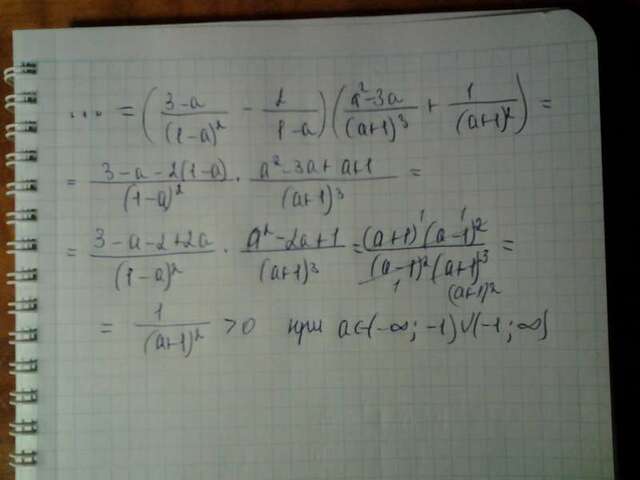 .... = ( (3-a)/(1-a)² - 2/(1-a) ) ( (a²-3a)/(a+1)³ + 1/(a+1)² ) =
= (3-a-2(1-a))/(1-a)² · (a²-3a+a+1)/(a+1)³ =
= (3-a-2+2a)/(1-a)² · (a²-2a+1)/(a+1)³ = ((a+1)¹(a-1)²¹)/((a-1)²₁(a+1)³) =
(a+1)²
= 1/(a+1)² >0 при a∈(-∞; -1)∪(-1; ∞)